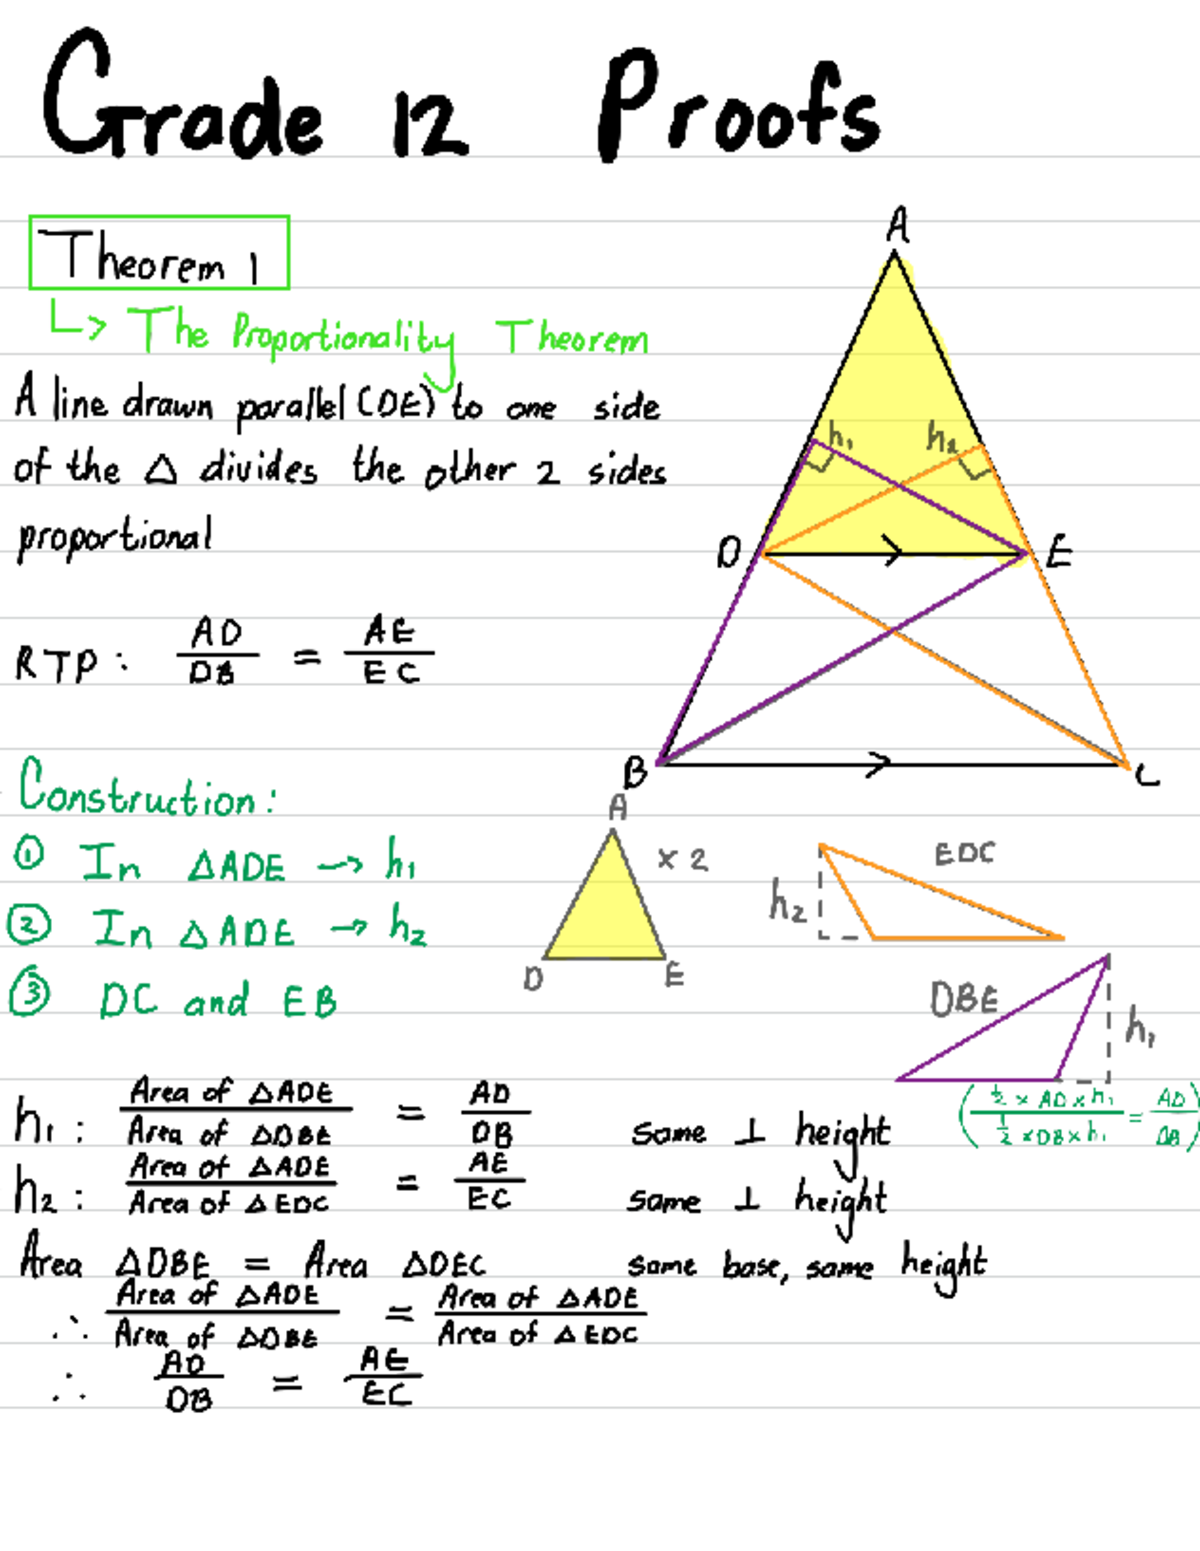 Grade 12 Proofs
Theorem 1
↳ The Proportionality Theorem
A line drawn parallel (DE) to one side
of the Δ divides the other 2 sides
proportional
RTP: AD/DB = AE/EC
A
h₁ h₂
D E
B C
Construction:
① In ΔADE → h₁
② In ΔADE → h₂
③ DC and EB
A
x 2
D E
EDC
h₂
DBE
h₁
h₁: Area of ΔADE / Area of ΔDBE = AD/DB same ⊥ height (½ × AD × h₁ / ½ × DB × h₁ = AD/DB)
h₂: Area of ΔADE / Area of ΔEDC = AE/EC same ⊥ height
Area ΔDBE = Area ΔDEC same base, same height
∴ Area of ΔADE / Area of ΔDBE = Area of ΔADE / Area of ΔEDC
∴ AD/DB = AE/EC